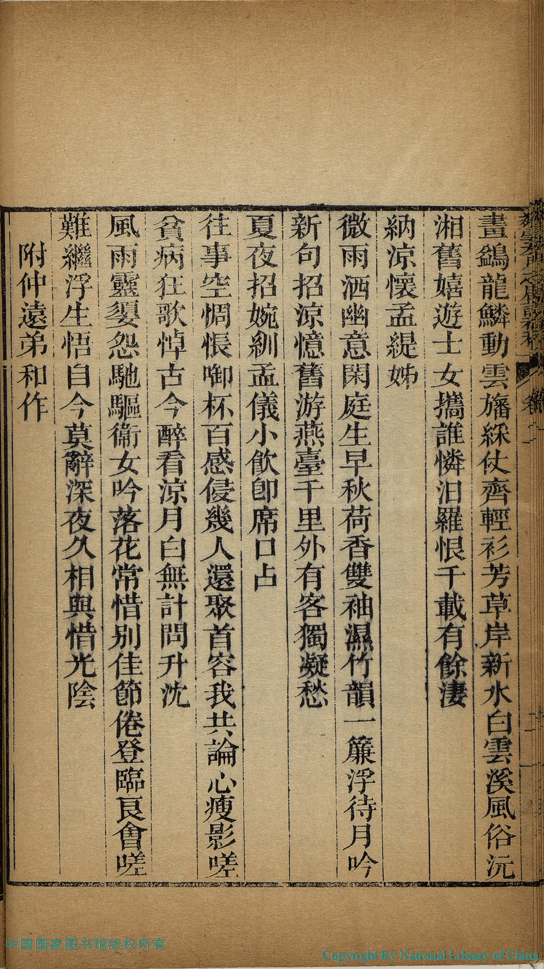 畫鷁龍鱗動雲旛綵仗齊輕衫芳草岸新水白雲溪風俗沅
湘舊嬉遊士女攜誰憐汨羅恨千載有餘淒
納涼懷孟緹姊
微雨洒幽意閑庭生早秋荷香雙袖濕竹韻一簾浮待月吟
新句招涼憶舊游燕臺千里外有客獨凝愁
夏夜招婉紃孟儀小飲卽席口占
往事空惆悵啣杯百感侵幾人還聚首容我共論心瘦影嗟
貧病狂歌悼古今醉看涼月白無計問升沈
風雨靈娿怨馳驅衞女吟落花常惜別佳節倦登臨良會嗟
難繼浮生悟自今莫辭深夜久相與惜光陰
附仲遠弟和作
中国国家图书馆版权所有
Copyright By National Library of China